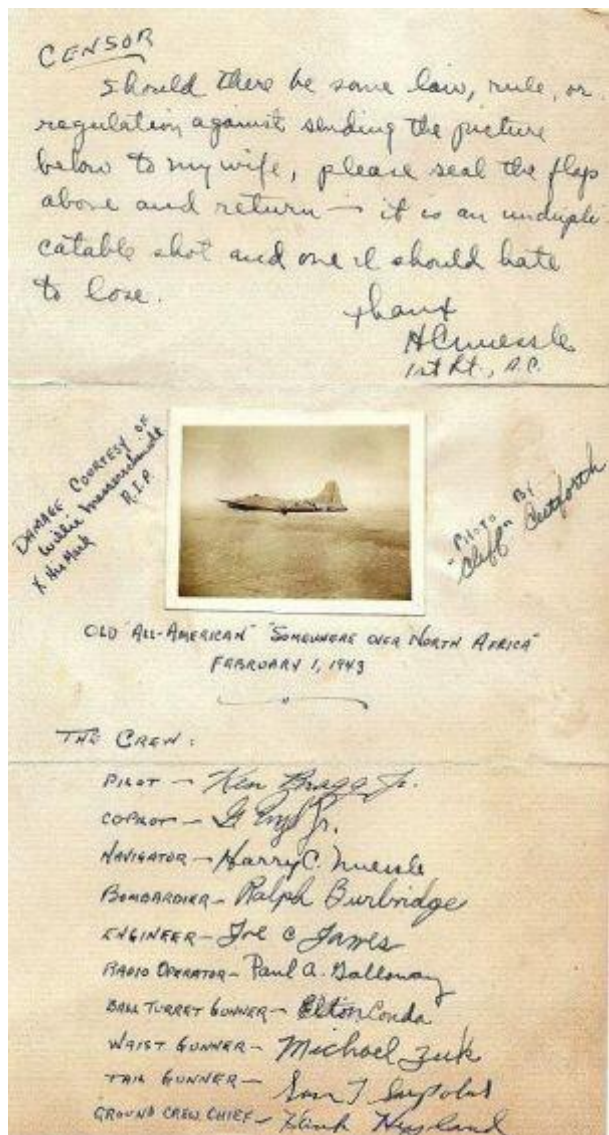 CENSOR
Should there be some law, rule, or
regulation against sending the picture
below to my wife, please seal the flap
above and return — it is an undupli-
catable shot and one I should hate
to lose.
Thanx
HCNuessle
1st Lt., A.C.
DAMAGE COURTESY OF
Willie Messerschmidt
R.I.P.
X His Mark
PHOTO BY
"Cliff" Cutforth
OLD "ALL-AMERICAN" "SOMEWHERE OVER NORTH AFRICA"
FEBRUARY 1, 1943
THE CREW:
PILOT — Ken Bragg Jr.
COPILOT — Jr.
NAVIGATOR — Harry C. Nuessle
BOMBARDIER — Ralph Burbridge
ENGINEER — Joe C James
RADIO OPERATOR — Paul A. Galloway
BALL TURRET GUNNER — Elton Conda
WAIST GUNNER — Michael Zuk
TAIL GUNNER — Sam T
GROUND CREW CHIEF — Hank Hyland